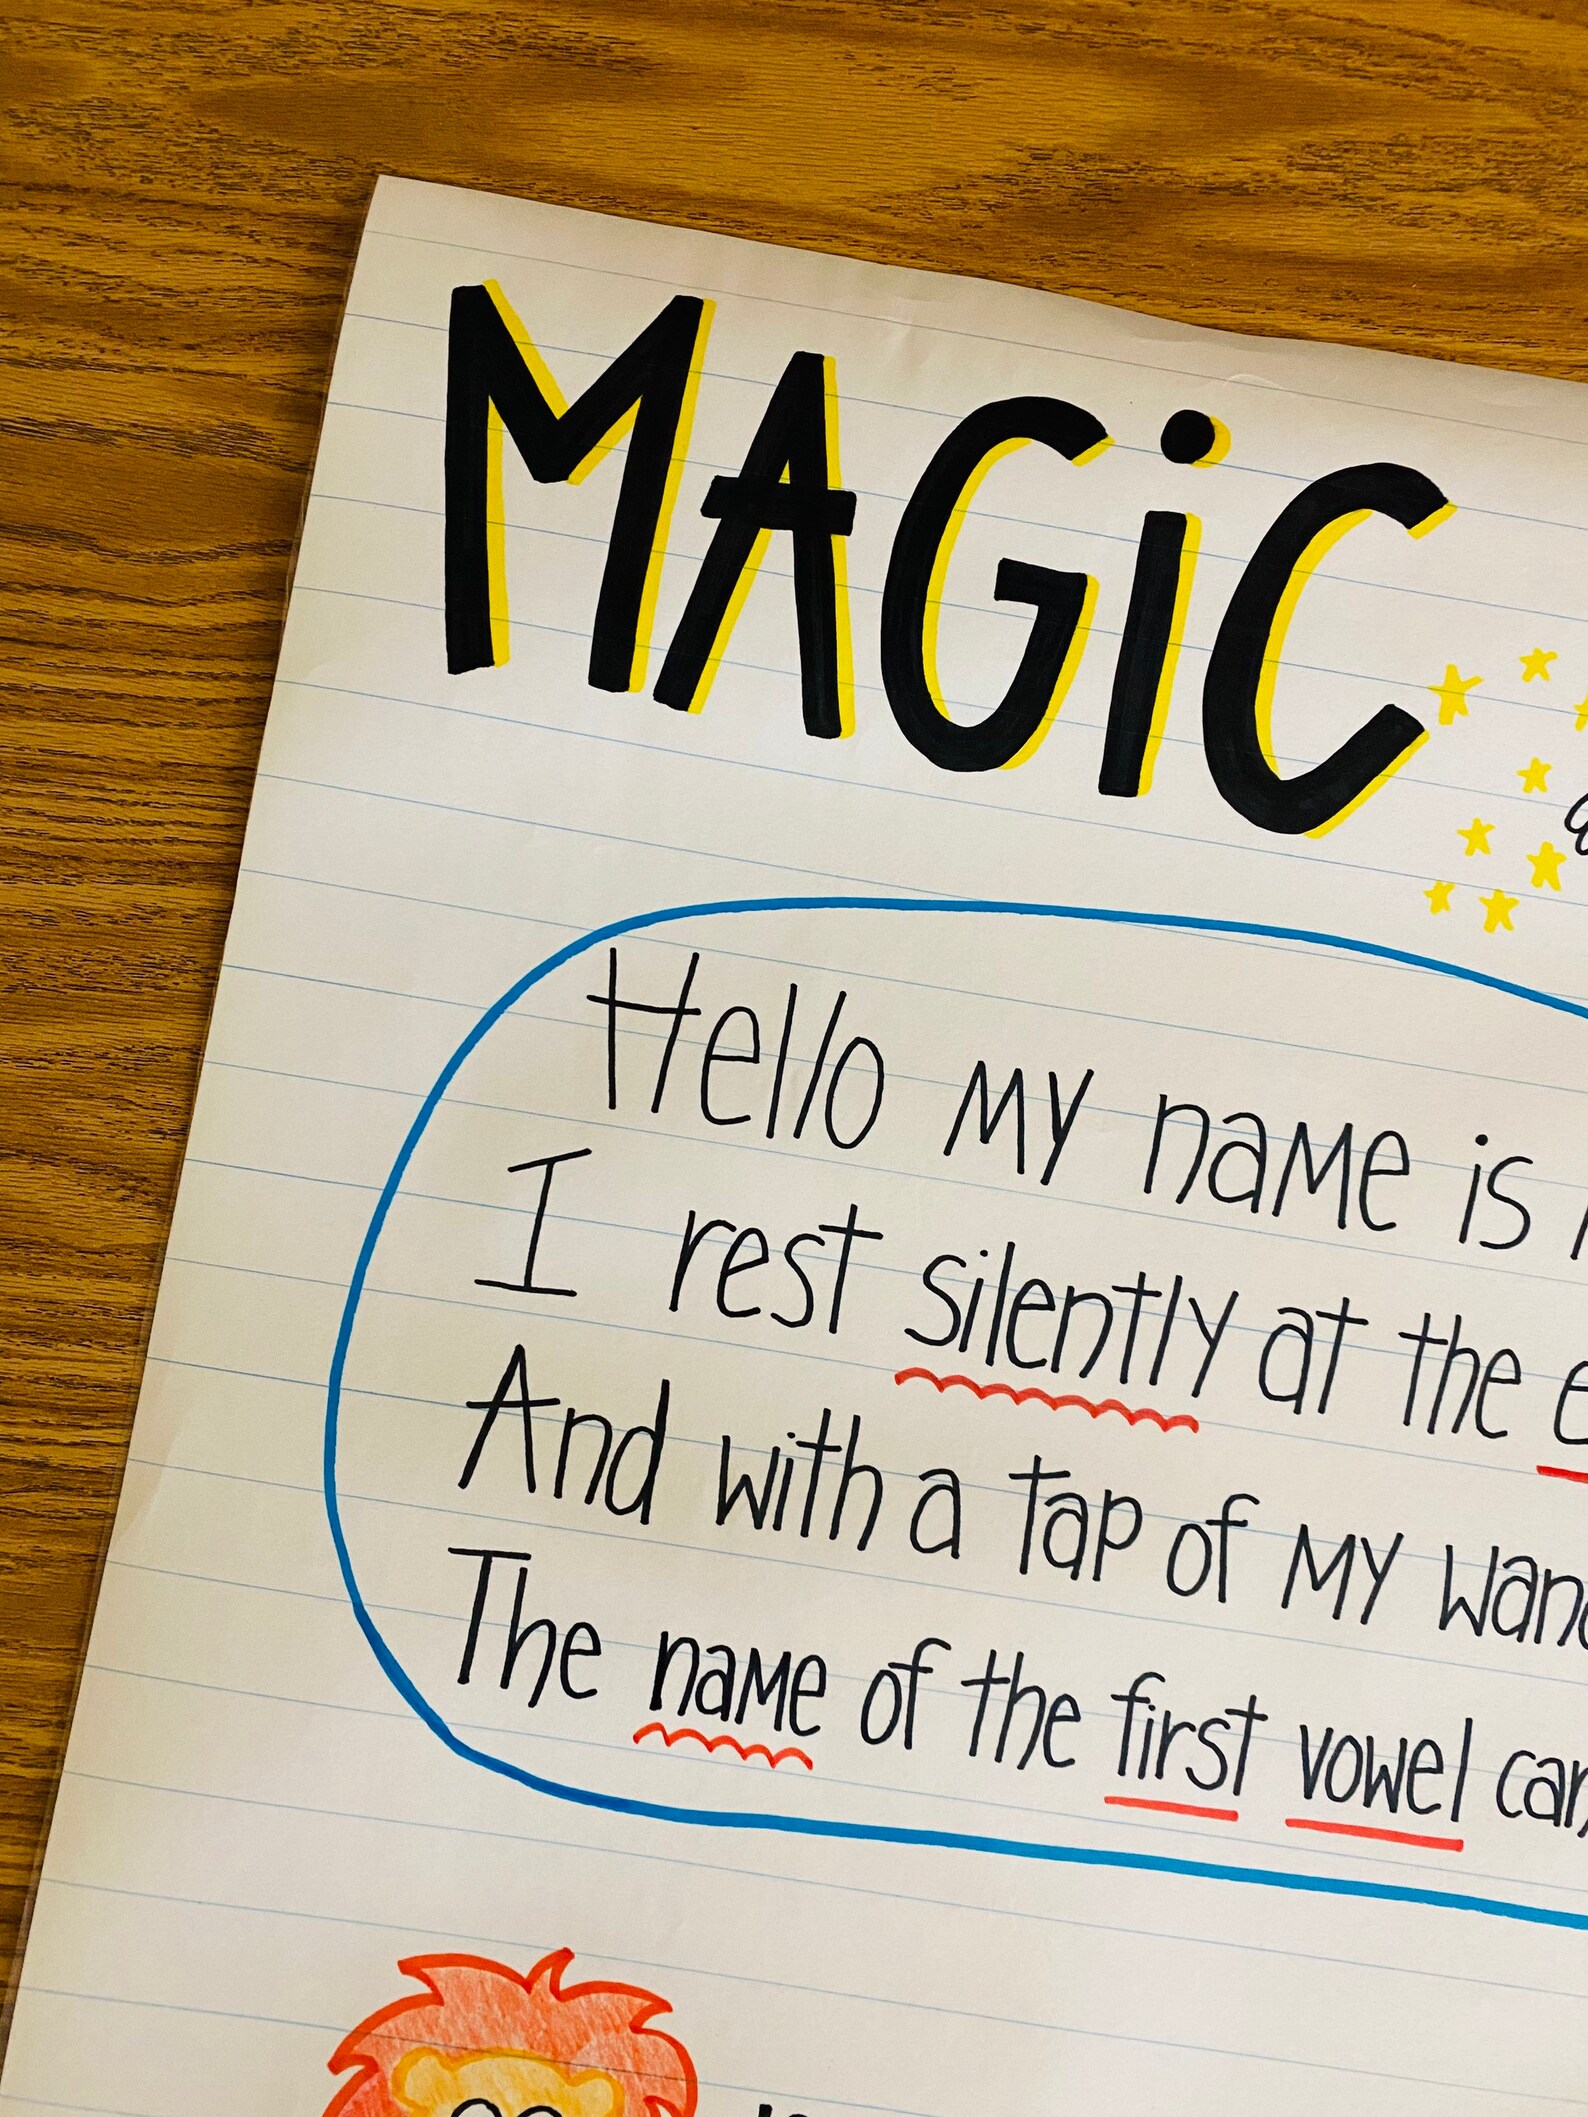 MAGiC
Hello my name is
I rest silently at the
And with a tap of my
The name of the first vowel